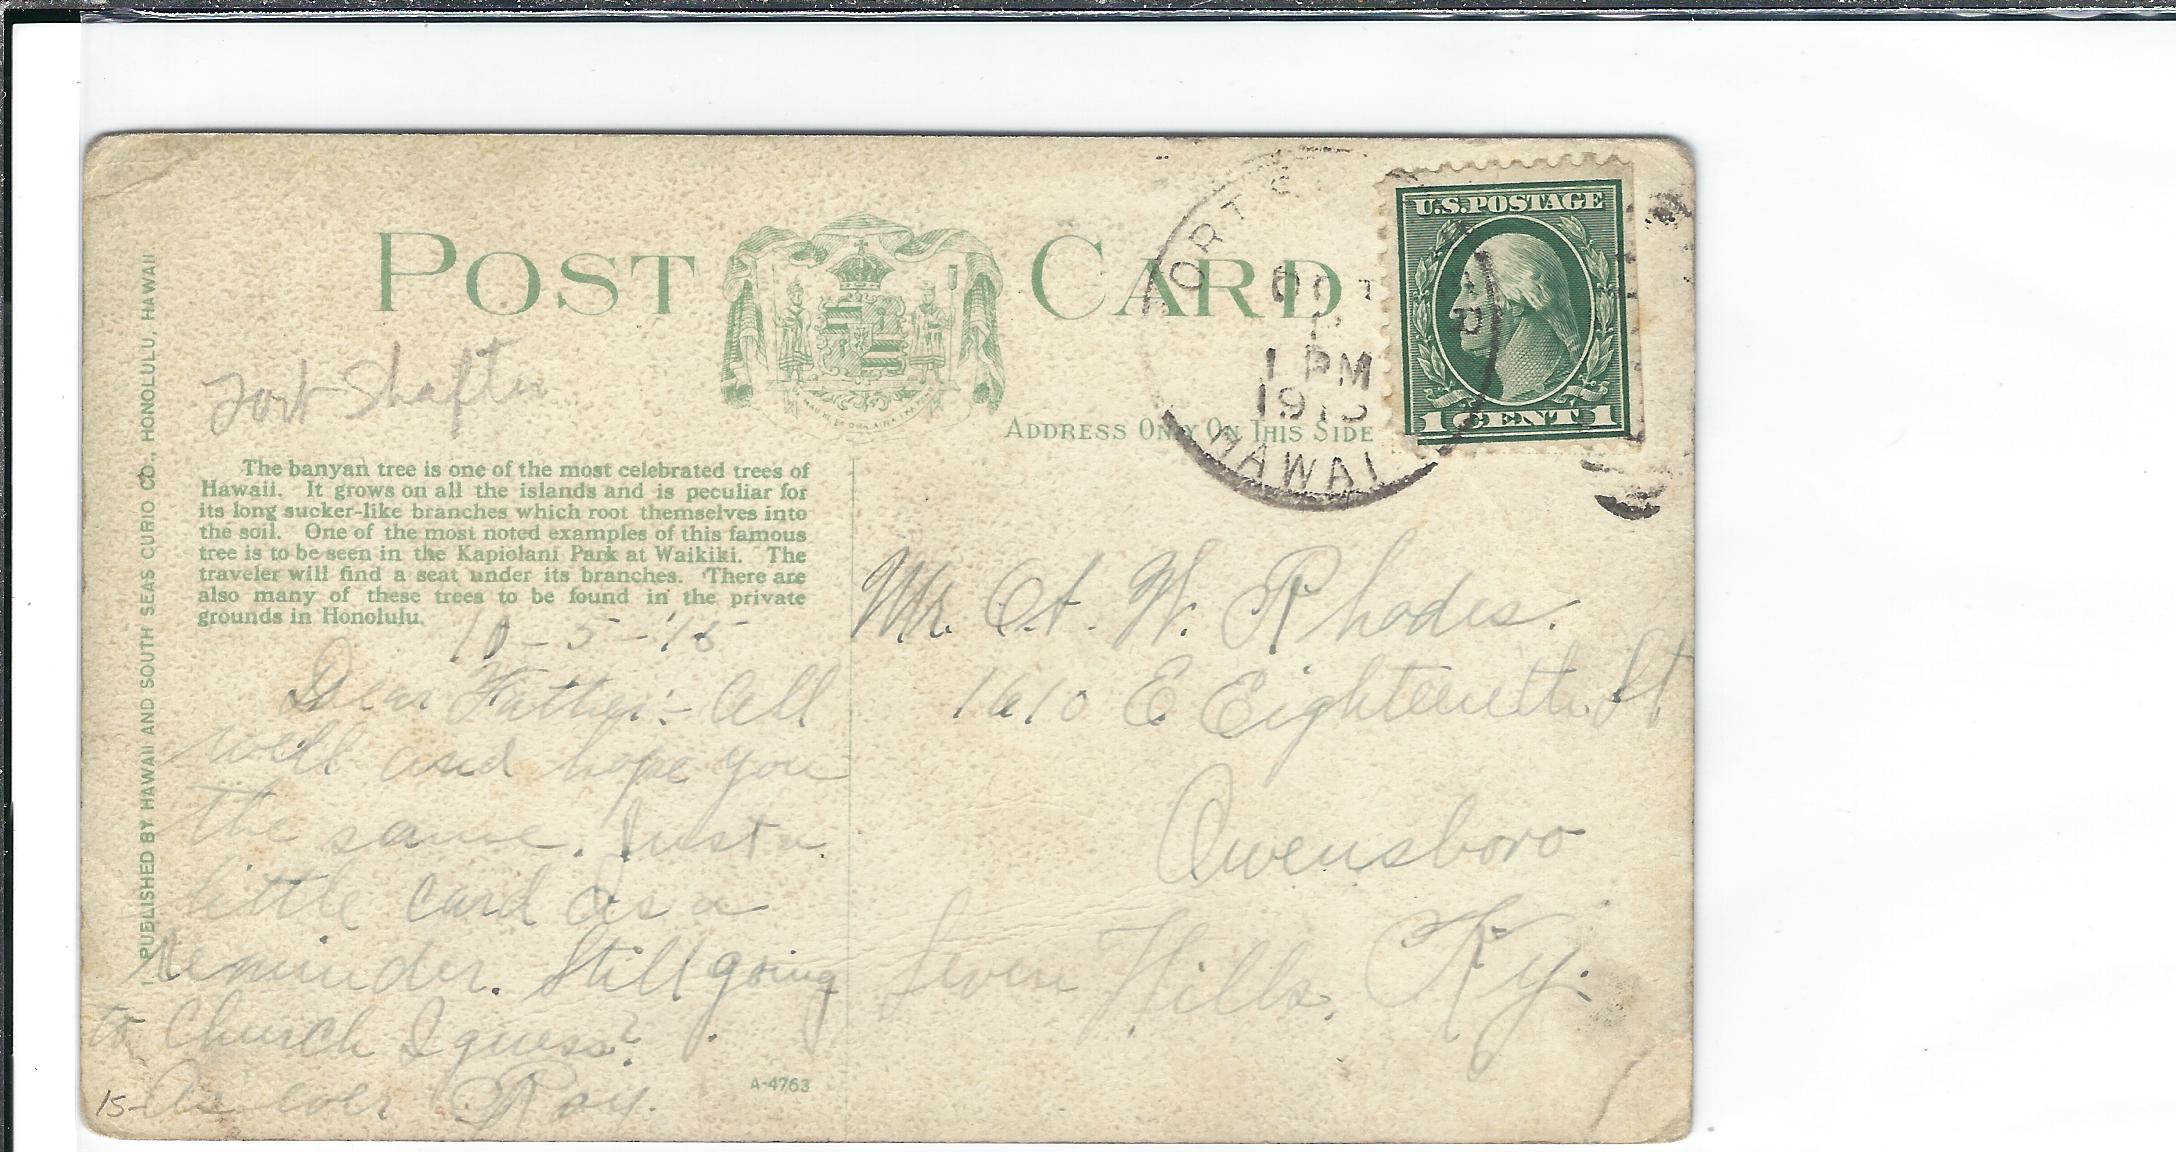 POST CARD
ADDRESS ONLY ON THIS SIDE
U.S. POSTAGE
1 CENT 1
ORT S
OCT
1 PM
1915
HAWAI
Fort Shafter
The banyan tree is one of the most celebrated trees of
Hawaii. It grows on all the islands and is peculiar for
its long sucker-like branches which root themselves into
the soil. One of the most noted examples of this famous
tree is to be seen in the Kapiolani Park at Waikiki. The
traveler will find a seat under its branches. There are
also many of these trees to be found in the private
grounds in Honolulu.
10-5-'15
Dear Father:- All
well and hope you
the same. Just a
little card as a
reminder. Still going
to Church I guess?
As ever Roy.
15-
A-4763
Mr. A. W. Rhodes.
1610 E Eighteenth St
Owensboro
Seven Hills, Ky.
PUBLISHED BY HAWAII AND SOUTH SEAS CURIO CO., HONOLULU, HAWAII